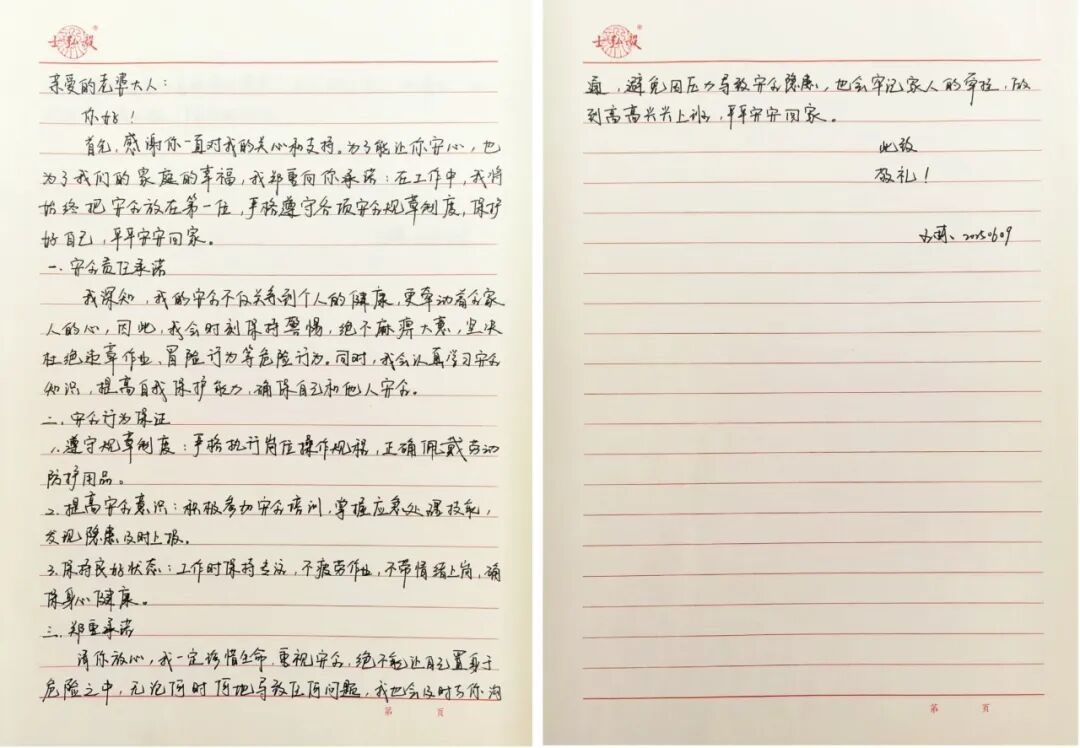 士弘毅
亲爱的老婆大人：
你好！
首先，感谢你一直对我的关心和支持。为了能让你安心，也
为了我们的家庭的幸福，我郑重向你承诺：在工作中，我将
始终把安全放在第一位，严格遵守各项安全规章制度，保护
好自己，平平安安回家。
一.安全责任承诺
我深知，我的安全不仅关系到个人的健康，更牵动着全家
人的心，因此，我会时刻保持警惕，绝不麻痹大意，坚决
杜绝违章作业、冒险行为等危险行为。同时，我会认真学习安全
知识，提高自我保护能力，确保自己和他人安全。
二.安全行为保证
1.遵守规章制度：严格执行岗位操作规程，正确佩戴劳动
防护用品。
2.提高安全意识：积极参加安全培训，掌握应急处理技能，
发现隐患及时上报。
3.保持良好状态：工作时保持专注，不疲劳作业，不带情绪上岗，确
保身心健康。
三.郑重承诺
请你放心，我一定珍惜生命，重视安全，绝不能让自己置身于
危险之中，无论何时何地导致任何问题，我也会及时与你沟
第 页
士弘毅
通，避免因压力导致安全隐患，也会牢记家人的牵挂，做
到高高兴兴上班，平平安安回家。
此致
敬礼！
20250609
第 页